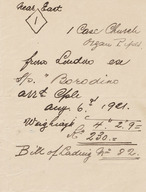 Near East
1
1 Case Church
Organ Pipes.
from London ex
S/s. "Borodino"
arrd
Aug. 6. 1921.
Weighing
230.—
Bill of Lading No 82.